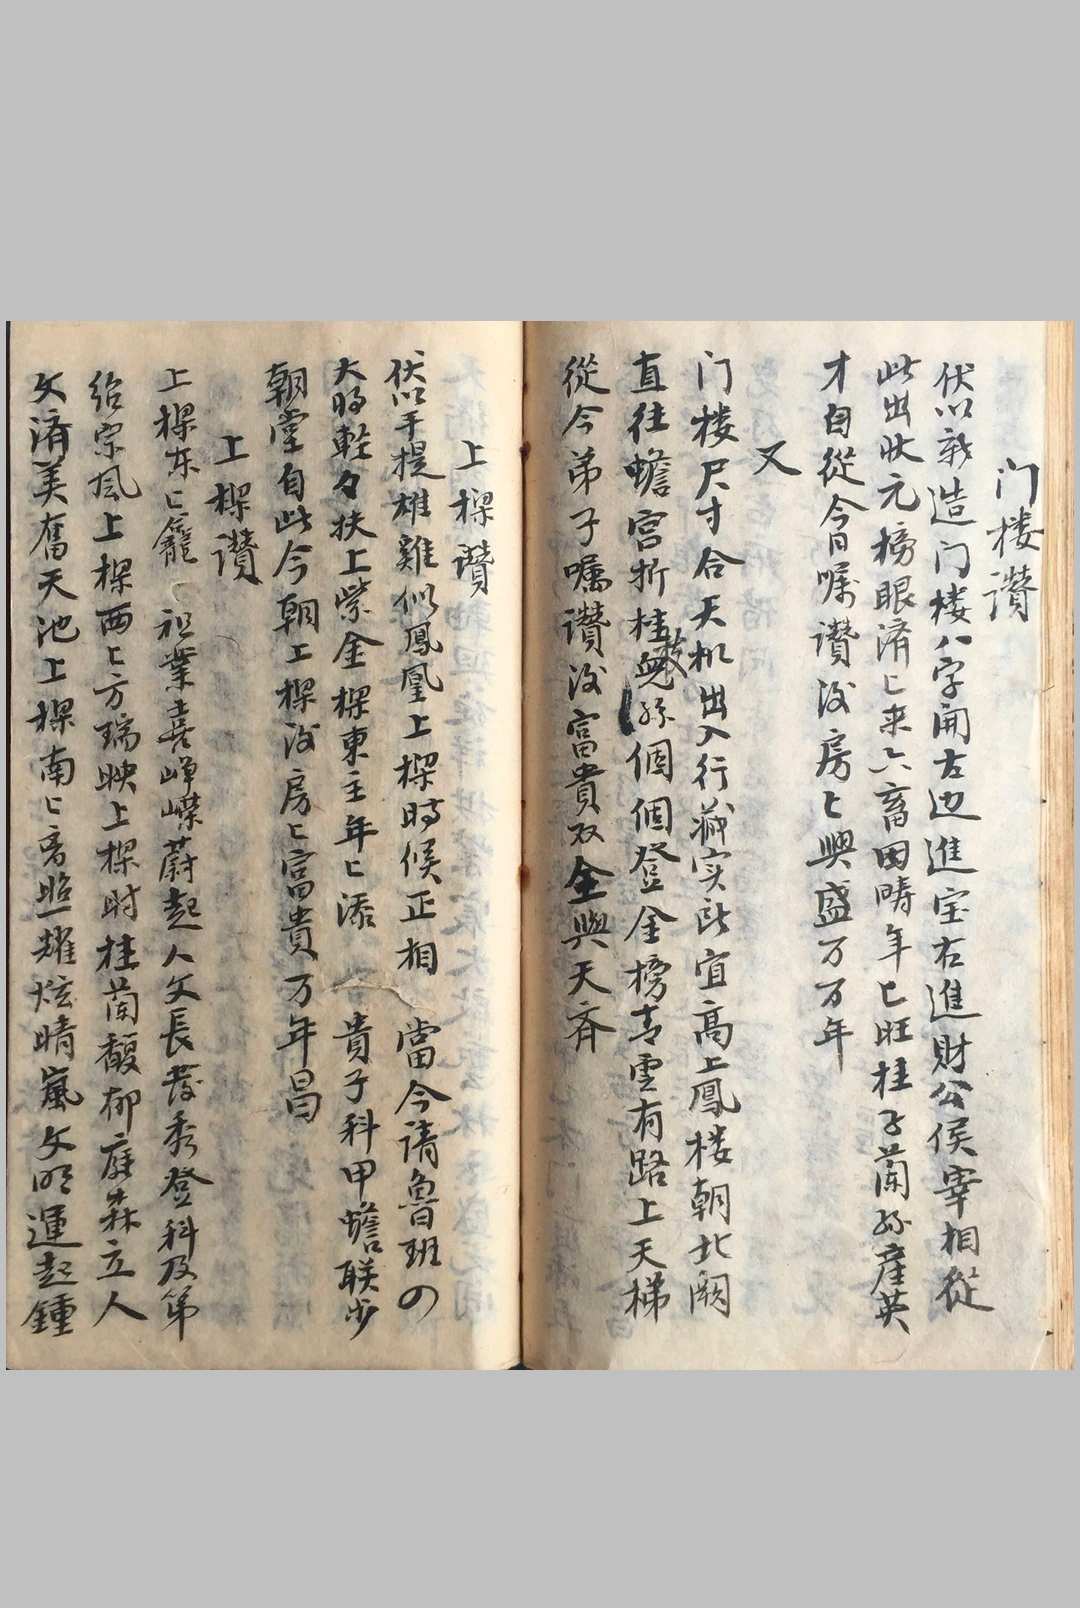 门楼讚
伏以新造门楼八字開左边進宝右進財公侯宰相從
此出狀元榜眼濟〻来六畜田疇年〻旺桂子蘭孫産英
才自從今日嘱讚後房〻興盛万万年
又
门楼尺寸合天机出入行藏实所宜高上鳳楼朝北闕
直往蟾宫折桂枝兒孫個個登金榜青雲有路上天梯
從今弟子嘱讚後富貴双全與天齊
上樑讚
伏以手提雄雞似鳳凰上樑時候正相當今請魯班の
大師輕々扶上紫金樑東主年〻添貴子科甲蟾联步
朝堂自此今朝上樑後房〻富貴万年昌
上樑讚
上樑东〻籠祖業喜崢嶸蔚起人文長發秀登科及第
紹宗風上樑西〻方瑞映上樑時桂蘭馥郁庭森立人
文濟美奮天池上樑南〻斉照耀炫晴嵐文明運起鍾